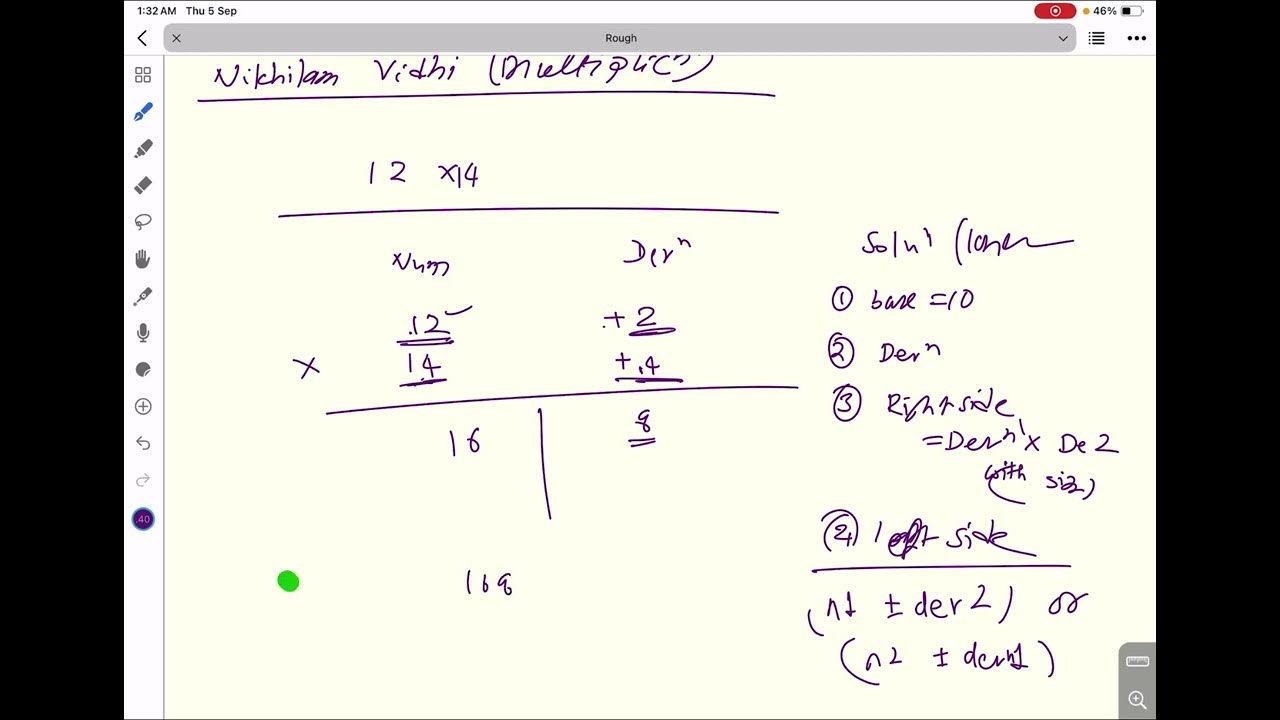 1:32 AM Thu 5 Sep
46%
Rough
Nikhilam Vidhi (Multiplicn)
12 x14
Num Dern
.12 + 2
x 14 + .4
16 8
168
Soln
① base =10
② Dern
③ Right side
= Dern1 x De 2
(with
left side
(n1 ± der 2) or
(n2 ± dern1)
.40